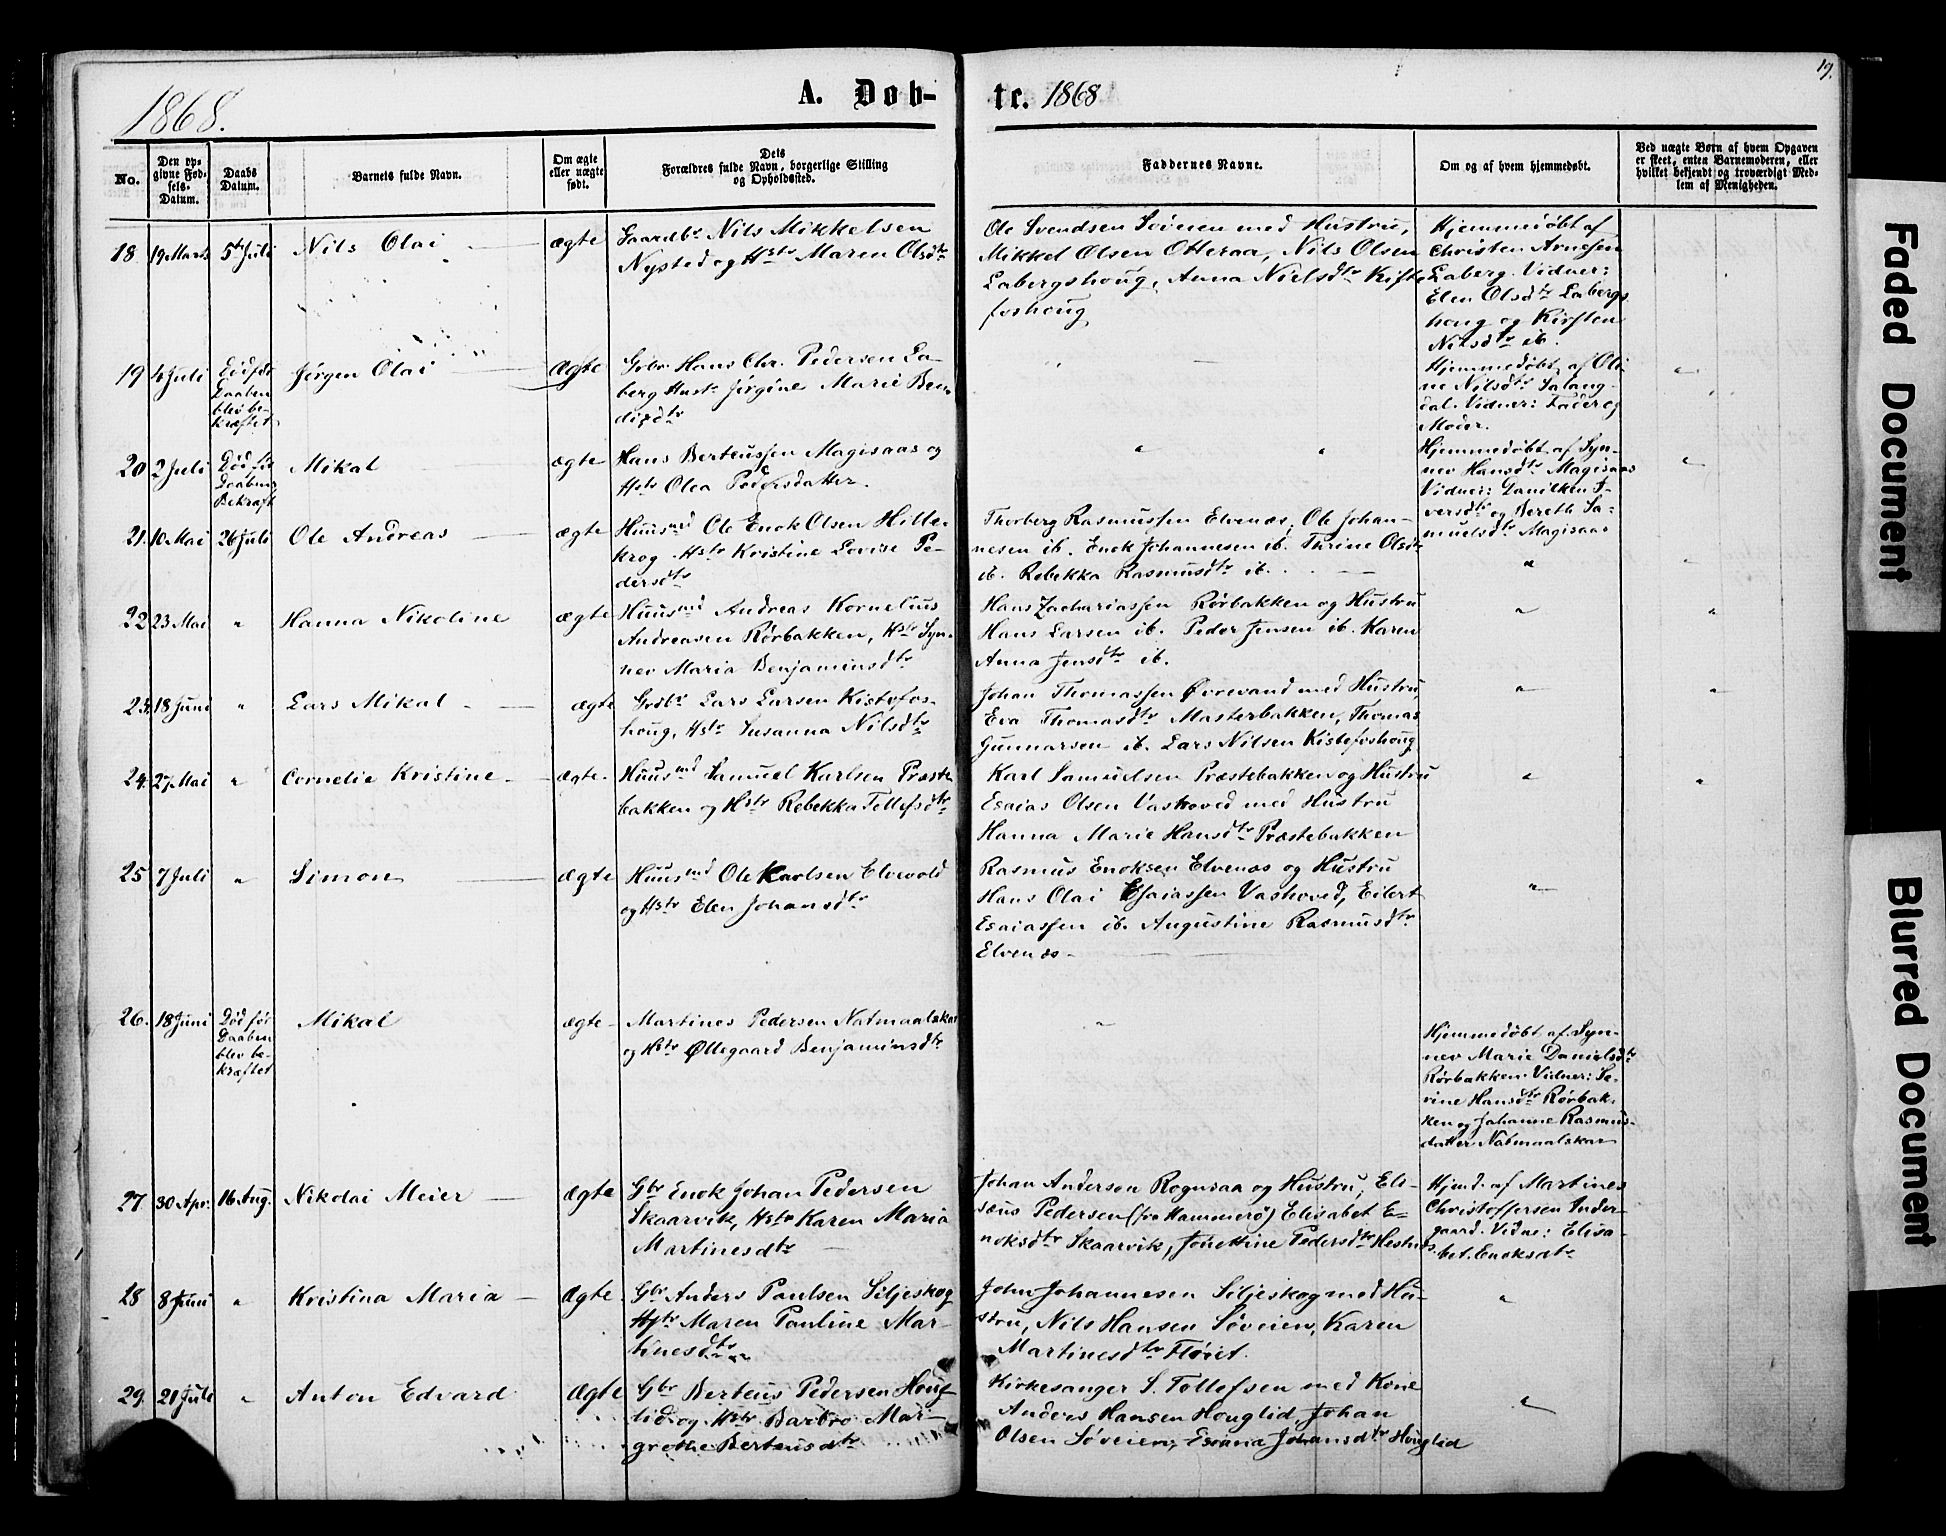 1868.
A. Døb-
te. 1868
19.
No.
Den op-
givne Fød-
sels-
Datum.
Daabs
Datum.
Barnets fulde Navn.
Om ægte
eller uægte
født.
Dets
Forældres fulde Navn, borgerlige Stilling
og Opholdssted.
Faddernes Navne.
Om og af hvem hjemmedøbt.
Ved uægte Børn af hvem Opgaven
er skeet, enten Barnemoderen, eller
hvilket bekjendt og troværdigt Med-
lem af Menigheden.
18 19 Marts 5te Juli Nils Olai ægte
Gaardbr Nils Mikkelsen
Nysted og Hstr Maren Olsdtr
Ole Svendsen Søveien med Hustru,
Mikkel Olsen Otteraa, Nils Olsen
Labergshoug, Anna Nielsdtr Kiste
foshoug
Hjemmedøbt af
Christen Arnesen
Laberg. Vidner:
Elen Olsdtr Labergs
houg og Kirsten
Nilsdtr ib.
19 4 Juli Død før
Daaben
blev be-
kræftet
Jørgen Olai Ægte
Gbr. Hans Chr. Pedersen La-
berg Hust. Jørgine Marie Ben-
dixdtr
Hjemmedøbt af Oli
ne Nilsdtr Salang-
dal. Vidner: Fader og
Moder.
20 2 Juli Død før
Daabens
Bekræft
Mikal ægte
Hans Berteussen Magisaas og
Hstr Olea Pedersdatter.
Hjemmedøbt af Syn-
nev Hansdtr Magisaas
Vidner: Danilken I-
versdtr og Bereth Sa-
muelsdtr Magisaas
21. 10 Mai 26 Juli Ole Andreas ægte
Huusmd Ole Enok Olsen Hille-
krog Hstr Kristine Lovise Pe-
dersdtr
Thorberg Rasmussen Elvenæs, Ole Johan-
nesen ib. Enok Johannesen ib. Thrine Olsdtr
ib. Rebekka Rasmusdtr ib.
22 23 Mai " Hanna Nikoline ægte
Huusmd Andreas Kornelius
Andreasen Rørbakken, Hstr Syn-
nev Maria Benjaminsdtr
Hans Zachariassen Rørbakken og Hustru
Hans Larsen ib. Peder Jensen ib. Karen
Anna Jensdtr ib.
23. 18 Juni " Lars Mikal ægte
Grdbr Lars Larsen Kistefos-
houg, Hstr Susanna Nilsdtr
Johan Thomassen Øvrevand med Hustru
Eva Thomasdtr Masterbakken, Thomas
Gunnarsen ib. Lars Nilsen Kistefoshoug
24. 27 Mai " Cornelie Kristine ægte
Huusmd Samuel Karlsen Præste
bakken og Hstr Rebekka Tollefsdtr
Karl Samuelsen Præstebakken og Hustru
Esaias Olsen Vashoved med Hustru
Hanna Marie Hansdtr Præstebakken
25 7 Juli " Simon ægte
Huusmd Ole Karlsen Elvevold
og Hstr Elen Johansdtr
Rasmus Enoksen Elvenæs og Hustru
Hans Olai Esaiassen Vashoved, Eilert
Esaiassen ib. Augustine Rasmusdtr
Elvenæs
26. 18 Juni Død før
Daaben
blev be-
kræftet
Mikal ægte
Martines Pedersen Natmaalskar
og Hstr Øllegaard Benjaminsdtr
Hjemmedøbt af Syn-
nev Marie Danielsdtr
Rørbakken. Vidner: Se-
rine Hansdtr Rørbak-
ken og Johanne Rasmus-
datter Natmaalskar
27 30 Apr. 16 Aug. Nikolai Meier ægte
Gbr Enok Johan Pedersen
Skaarvik, Hstr Karen Maria
Martinesdtr
Johan Andersen Rognsaa og Hustru, Eli-
sæus Pedersen (fra Hammerø) Elisabet E-
noksdtr Skaarvik, Jonettine Pedersdtr Hestnes
Hjmd. af Martines
Christoffersen Inder-
gaard. Vidne: Elisa-
bet Enoksdtr
28 8 Juni " Kristina Maria Ægte
Gbr Anders Paulsen Siljeskog
Hstr Maren Pauline Mar-
tinesdtr
John Johannesen Siljeskog med Hu-
stru, Nils Hansen Søveien, Karen
Martinesdtr Fløiet.
29. 21 Juli " Anton Edvard Ægte
Gbr Berteus Pedersen Houg
lid og Hstr Barbro Mar-
grethe Berteusdtr
Kirkesanger S. Tollefsen med Kone
Anders Hansen Houglid, Johan
Olsen Søveien, Esiana Johansdtr Houglid
Faded Document
Blurred Document